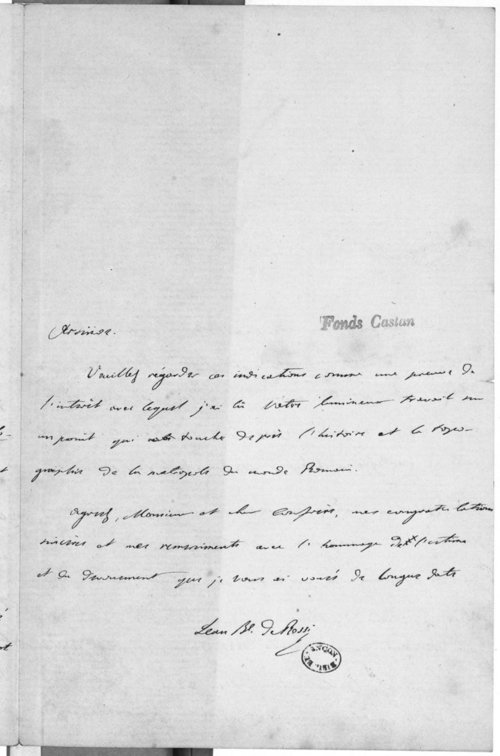 Fonds Castan
Veuillez regarder ces indications comme une preuve de
l'intérêt avec lequel j'ai lu votre lumineux travail sur
un point qui touche de près l'histoire et la topo-
graphie de la métropole du monde Romain.
Agréez, Monsieur et cher Confrère, mes congratulations
sincères et mes remerciments avec l'hommage de l'estime
et du dévouement que je vous ai voués de longue date
Jean Bt. de Rossi